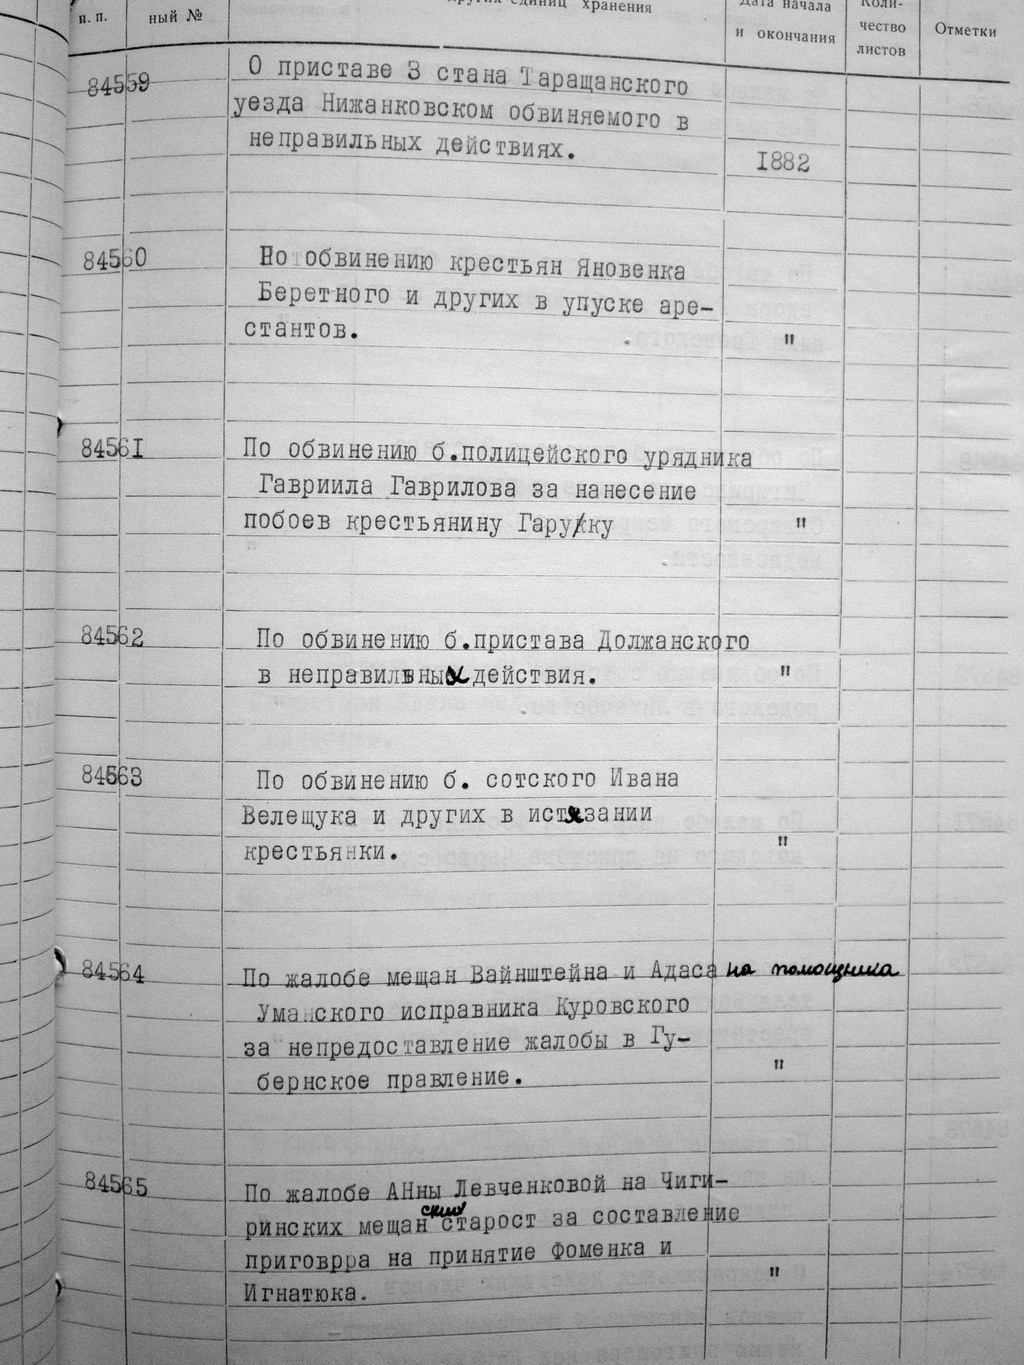 п. п.
ный №
других единиц хранения
Дата начала
и окончания
Коли-
чество
листов
Отметки
84559
О приставе 3 стана Таращанского
уезда Нижанковском обвиняемого в
неправильных действиях.
1882
84560
По обвинению крестьян Яновенка
Беретного и других в упуске аре-
стантов.
"
84561
По обвинению б.полицейского урядника
Гавриила Гаврилова за нанесение
побоев крестьянину Гаруку
"
84562
По обвинению б.пристава Должанского
в неправильных действия.
"
84563
По обвинению б. сотского Ивана
Велещука и других в истязании
крестьянки.
"
84564
По жалобе мещан Вайнштейна и Адаса на помощника
Уманского исправника Куровского
за непредоставление жалобы в Гу-
бернское правление.
"
84565
По жалобе АНны Левченковой на Чиги-
ринских мещанских старост за составление
приговрра на принятие Фоменка и
Игнатюка.
"